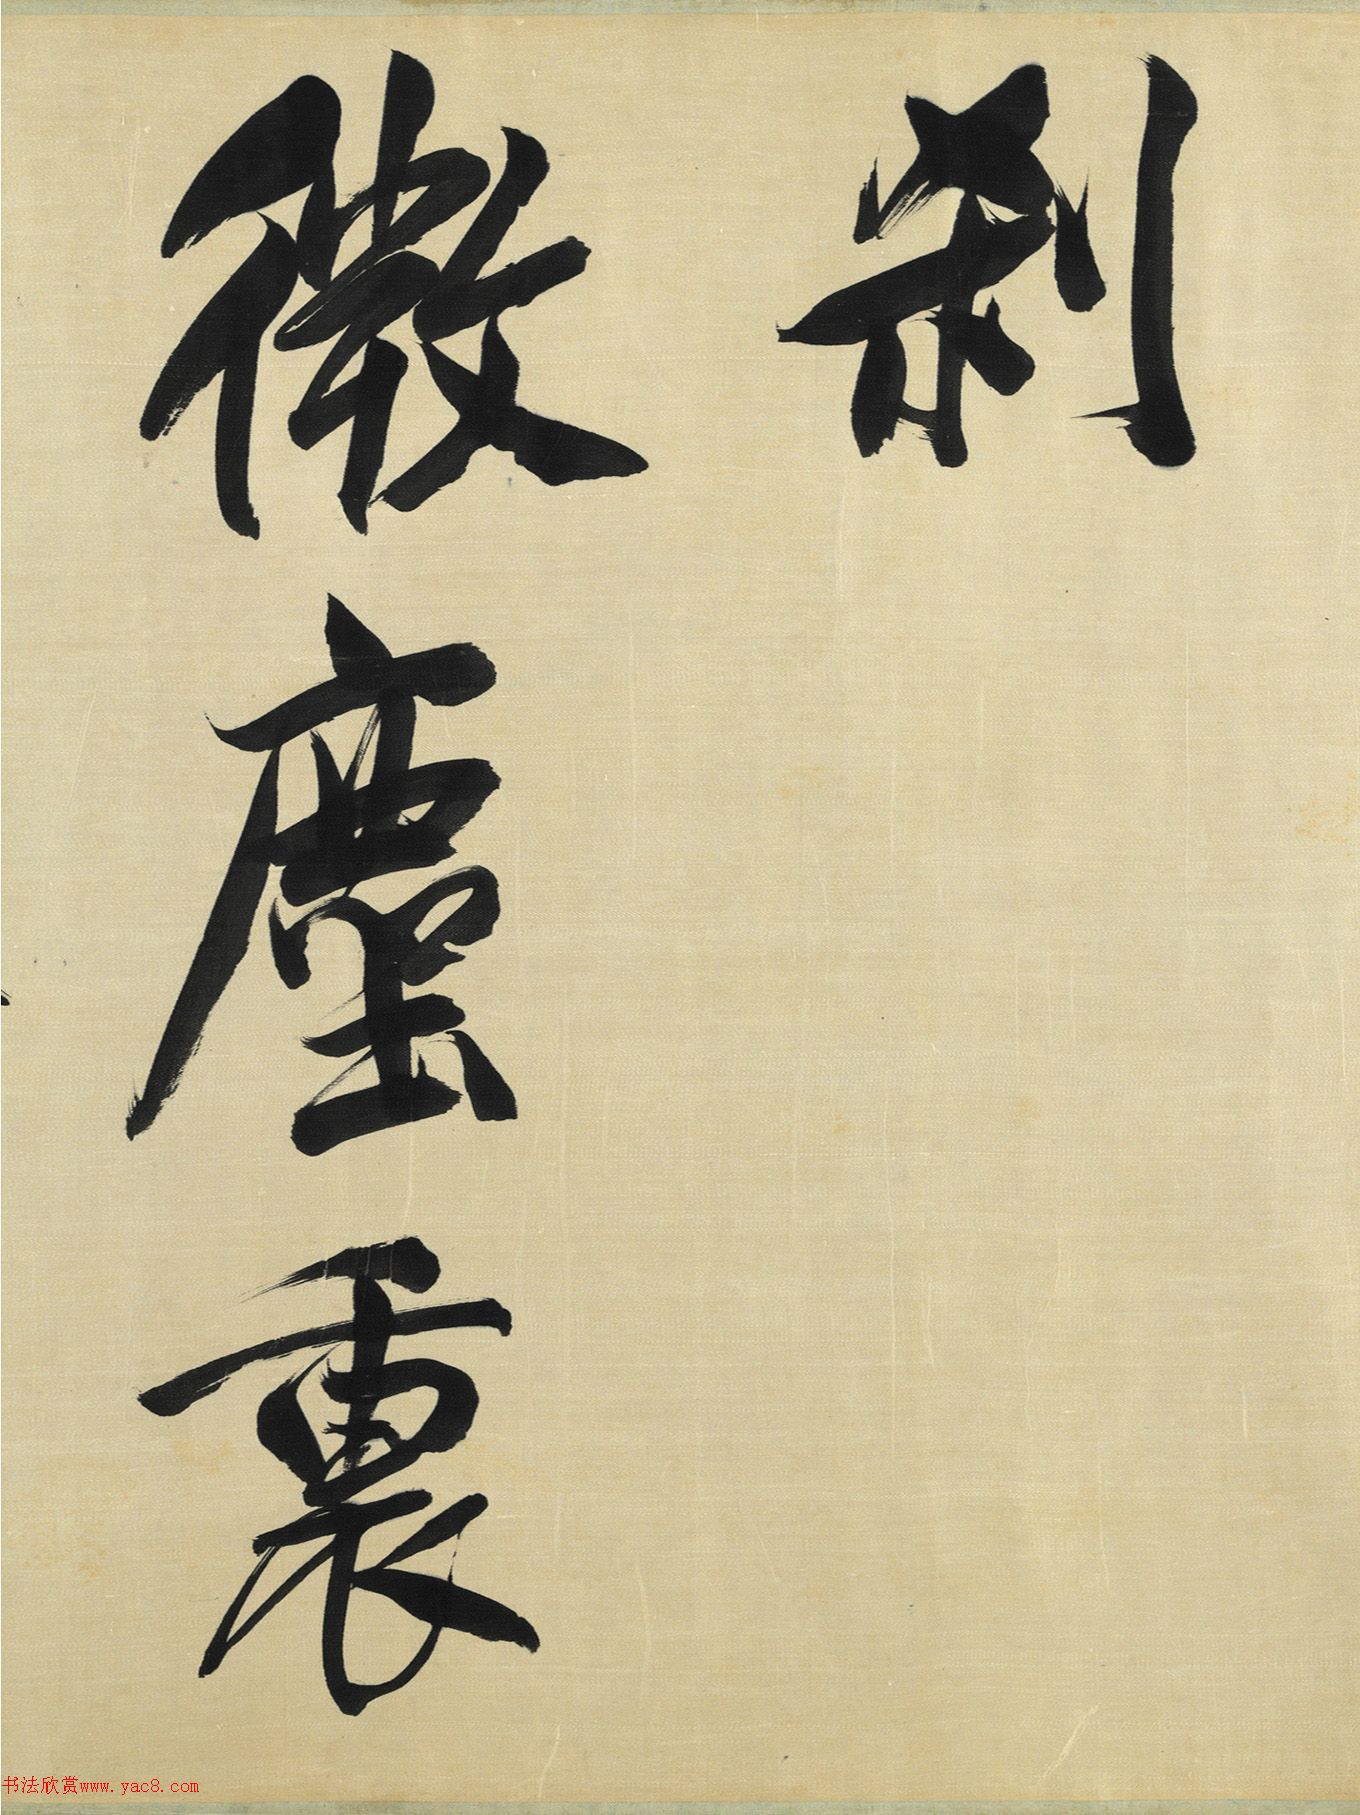 刹
微塵裏
书法欣赏www.yac8.com